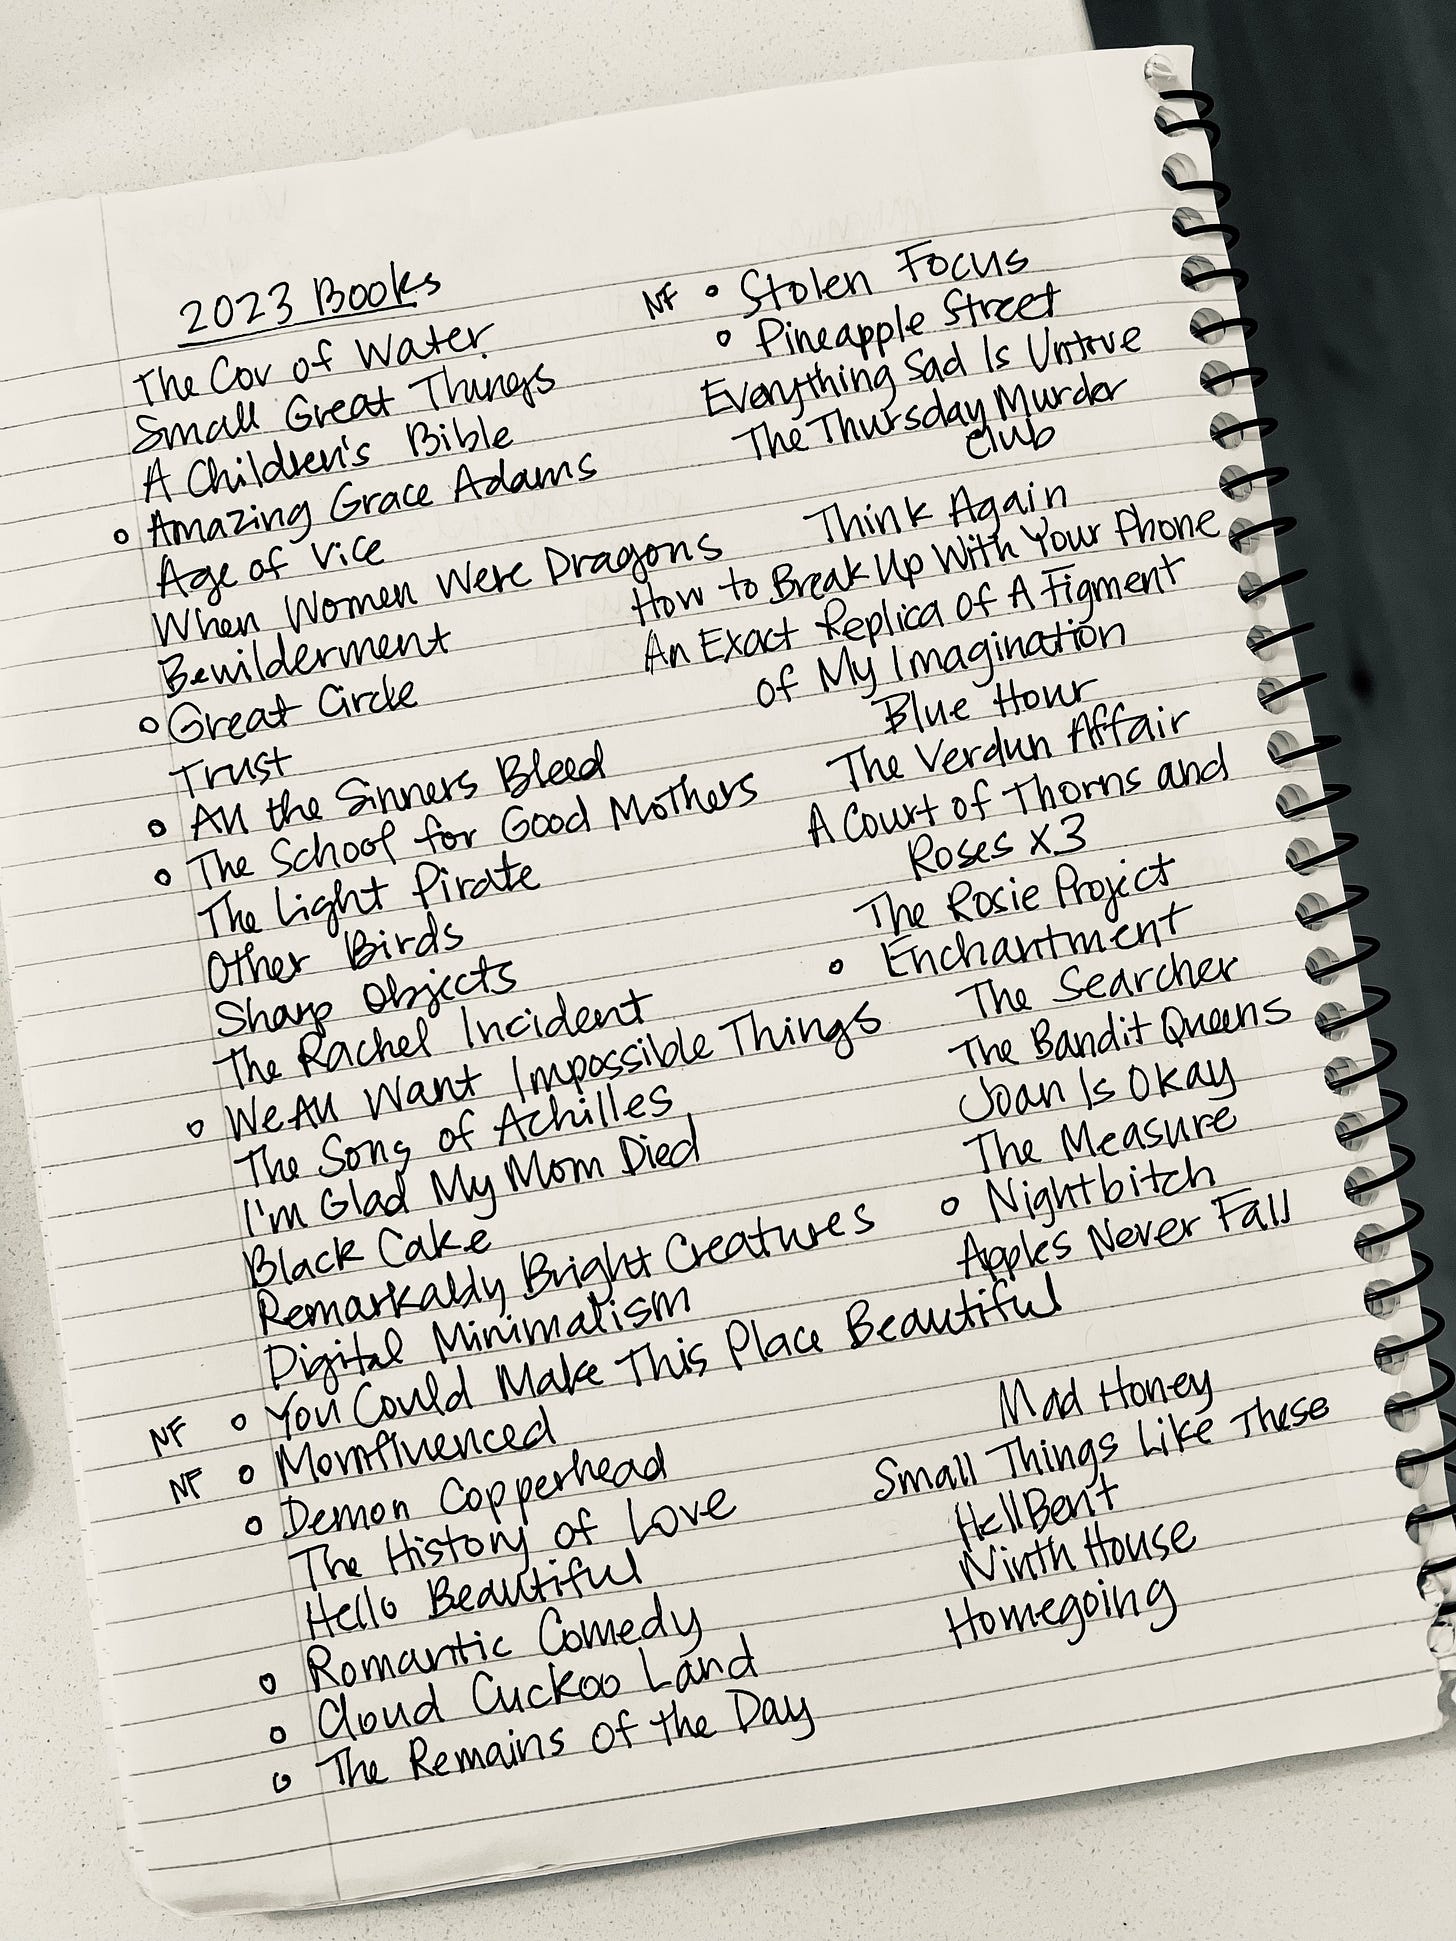 2023 Books
The Cov of Water
Small Great Things
A Children's Bible
° Amazing Grace Adams
Age of Vice
When Women Were Dragons
Bewilderment
° Great Circle
Trust
° All the Sinners Bleed
° The School for Good Mothers
The Light Pirate
Other Birds
Sharp Objects
The Rachel Incident
° We All Want Impossible Things
The Song of Achilles
I'm Glad My Mom Died
Black Cake
Remarkably Bright Creatures
Digital Minimalism
NF ° You Could Make This Place Beautiful
NF ° Momfluenced
° Demon Copperhead
The History of Love
Hello Beautiful
° Romantic Comedy
° Cloud Cuckoo Land
° The Remains of the Day
NF ° Stolen Focus
° Pineapple Street
Everything Sad Is Untrue
The Thursday Murder
Club
Think Again
How to Break Up With Your Phone
An Exact Replica of A Figment
of My Imagination
Blue Hour
The Verdun Affair
A Court of Thorns and
Roses x3
The Rosie Project
° Enchantment
The Searcher
The Bandit Queens
Joan Is Okay
The Measure
° Nightbitch
Apples Never Fall
Mad Honey
Small Things Like These
Hell Bent
Ninth House
Homegoing